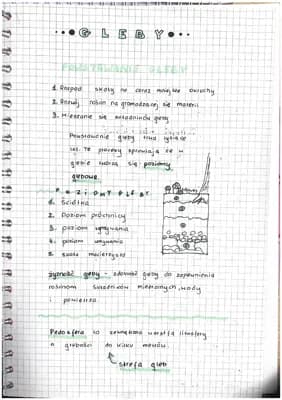 GLEBY
POWSTAWANIE GLEBY
1. Rozpad skały na coraz mniejsze okruchy
2. Rozwój roślin na gromadzącej się materii
3. Mieszanie się składników gleby
Powstawanie gleby trwa tysiące
lat. Te procesy sprawiają że w
glebie tworzą się poziomy
glebowe
POZIOMY GLEBY
1. Ściółka
2. Poziom próchnicy
3. poziom wymywania
4. poziom wmywania
5. skała macierzysta
żyzność gleby - zdolność gleby do zapewnienia
roślinom składników mineralnych, wody
i powietrza
Pedosfera to zewnętrzna warstwa litosfery
o głębokości do kilku metrów.
strefa gleb